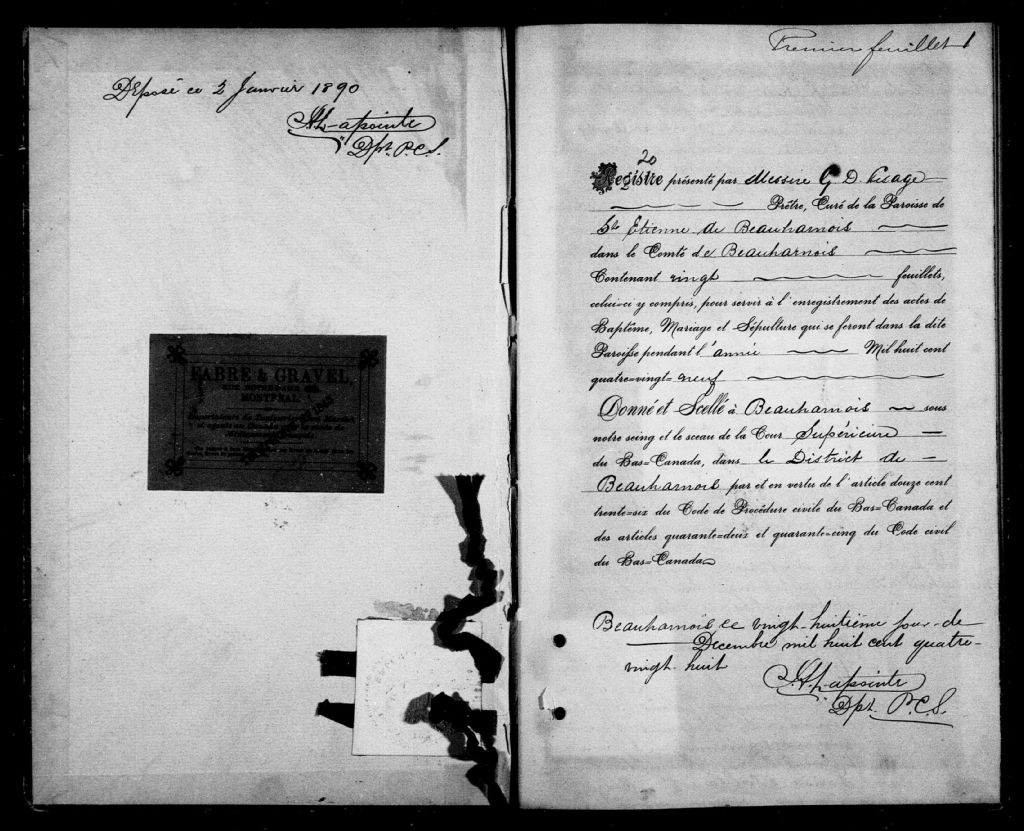 Déposé ce 2 Janvier 1890
Lapointe
Dpt. P.C.S.
FABRE & GRAVEL,
MONTREAL
Premier feuillet 1
20
Registre présenté par Messire G D Lesage
Prêtre, Curé de la Paroisse de
St Etienne de Beauharnois
dans le Comté de Beauharnois
Contenant vingt feuillets,
celui-ci y compris, pour servir à l'enregistrement des actes de
Baptême, Mariage et Sépulture qui se feront dans la dite
Paroisse pendant l'année Mil huit cent
quatre=vingt=neuf
Donné et Scellé à Beauharnois sous
notre seing et le sceau de la Cour Supérieure
du Bas=Canada, dans le District de
Beauharnois par et en vertu de l'article douze cent
trente=six du Code de Procédure civile du Bas=Canada et
des articles quarante=deux et quarante=cinq du Code civil
du Bas=Canada
Beauharnois ce vingt-huitième jour de
Decembre mil huit cent quatre-
vingt huit
Lapointe
Dpt. P.C.S.